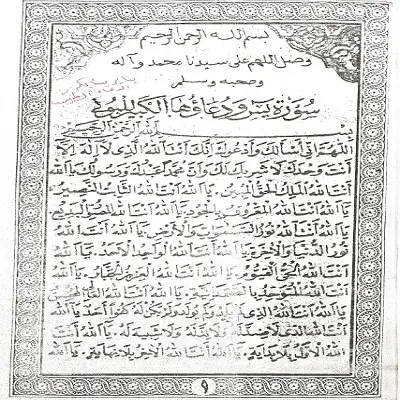 بسم الله الرحمن الرحيم
وصل اللهم على سيدنا محمد وآله
وصحبه وسلم
سورة يس ودعاؤها الكبير
بسم الله الرحمن الرحيم
اللهم اني أسألك وأدعوك بأنك أنت الله الذي لا إله إلا
أنت وحدك لا شريك لك وأن محمدا عبدك ورسولك يا الله
أنت الله الملك الحق المبين يا الله أنت الله
يا الله أنت الله المعروف بالجود يا الله أنت الله
يا الله أنت الله نور السموات والأرض يا الله أنت الله
نور الدنيا والآخرة يا الله أنت الله الواحد الأحد يا الله
أنت الله الحي القيوم يا الله أنت الله العزيز الجبار يا الله
أنت الله المتوحد بالصمدانية يا الله أنت الله
يا الله أنت الله الذي لم يلد ولم يولد ولم يكن له كفوا أحد يا الله
أنت الله الذي لا ضد له ولا ند له ولا شبيه له يا الله أنت
الله الأول بلا بداية يا الله أنت الله الآخر بلا نهاية يا الله
٩